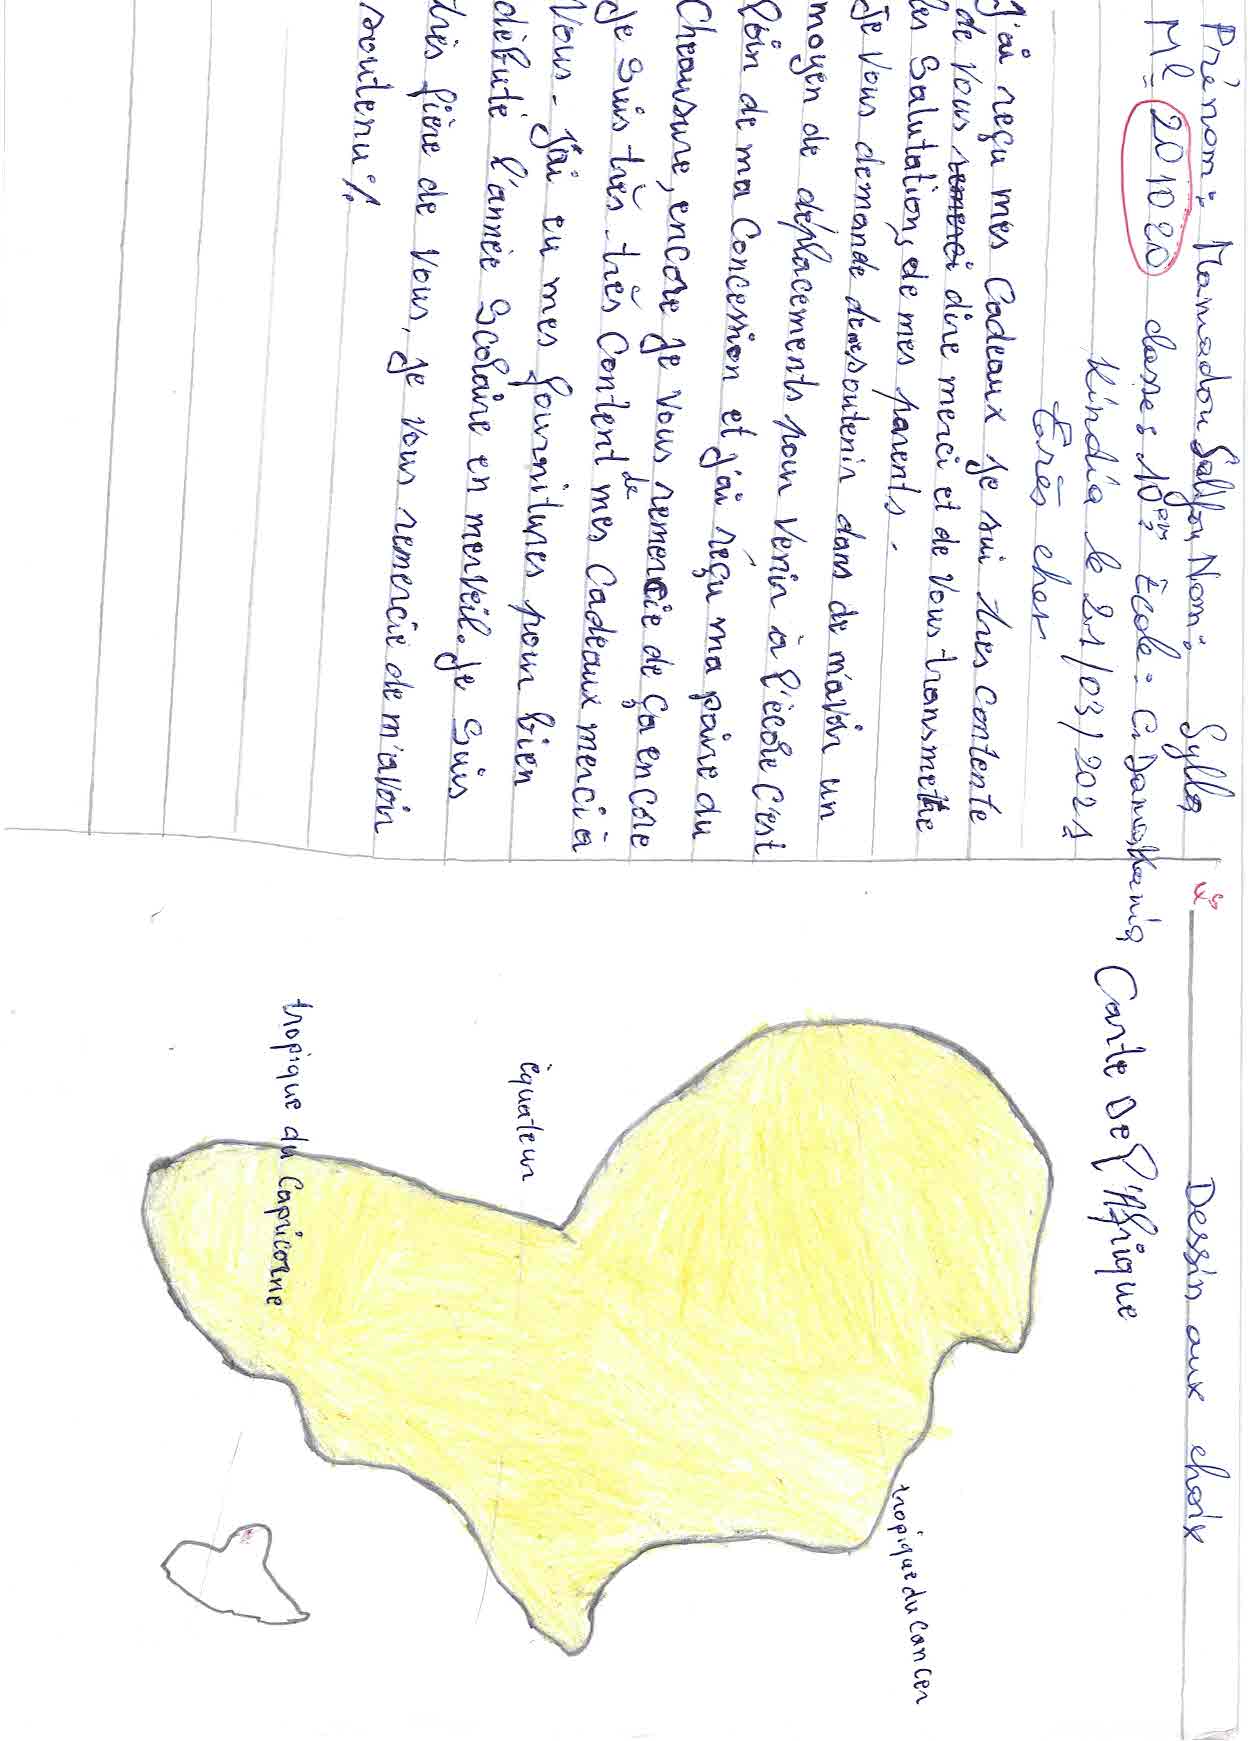 Prénom: Mamadou Saliou Nom: Sylla
Ml 201020 classes 10em École: C. Damakania
Kindia le 21/03/2021
Très cher
J'ai reçu mes Cadeaux je sui tres contente
de vous remerci dire merci et de vous transmettre
les Salutations de mes parents.
Je vous demande de me soutenir dans de m'avoir un
moyen de déplacements pour venir à l'école C'est
loin de ma Concession et j'ai reçu ma paire du
Chaussure, encore je vous remercie de ça encore
Je suis très-très Content de mes Cadeaux merci à
Vous. J'ai eu mes fournitures pour bien
débuté l'année Scolaire en merveil. Je suis
très fière de vous, je vous remercie de m'avoir
soutenu ⁒
Dessin aux choix
Carte De l'Afrique
tropique du Cancer
équateur
tropique du Capricorne